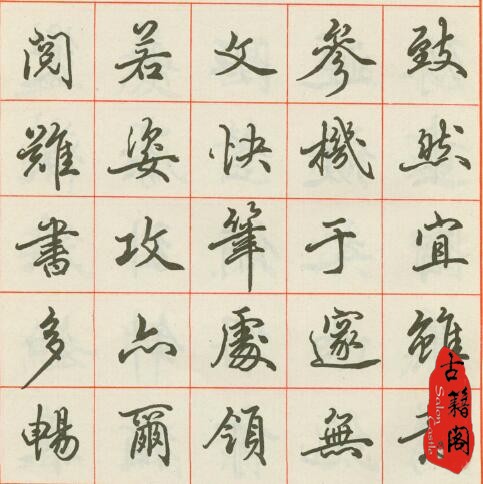 致然宜雖
參機于邃無
文快筆處領
若姿攻亦爾
閱難書多暢
古籍阁
Salon Castle